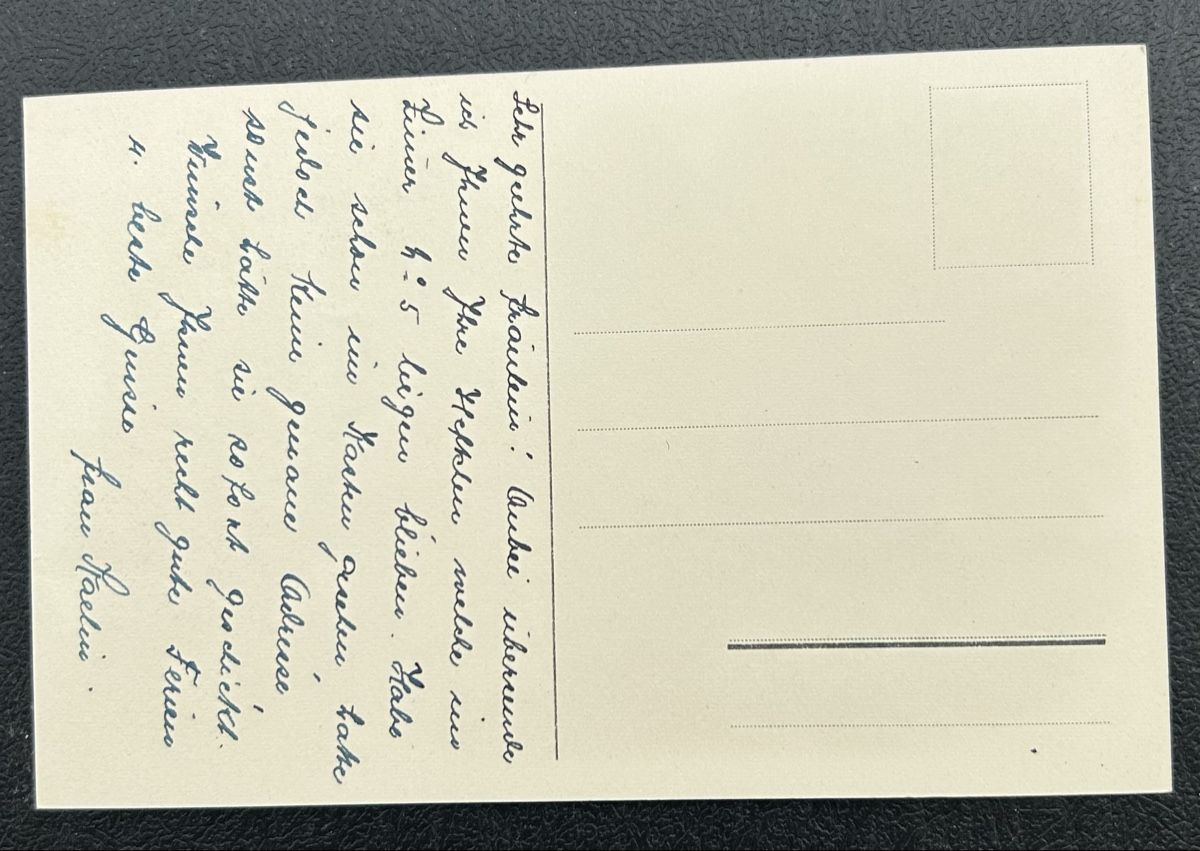 Sehr geehrte Fräulein! Anbei übersende
ich Ihnen Ihre Heftlein welche im
Zimer No 5 liegen blieben. Habe
sie schon im Kasten gesehen, hatte
jedoch kein genaue Adresse
sonst hätte sie sofort geschickt.
Wünsche Ihnen recht gute Ferien
u. beste Grüsse
Frau Kaelin.